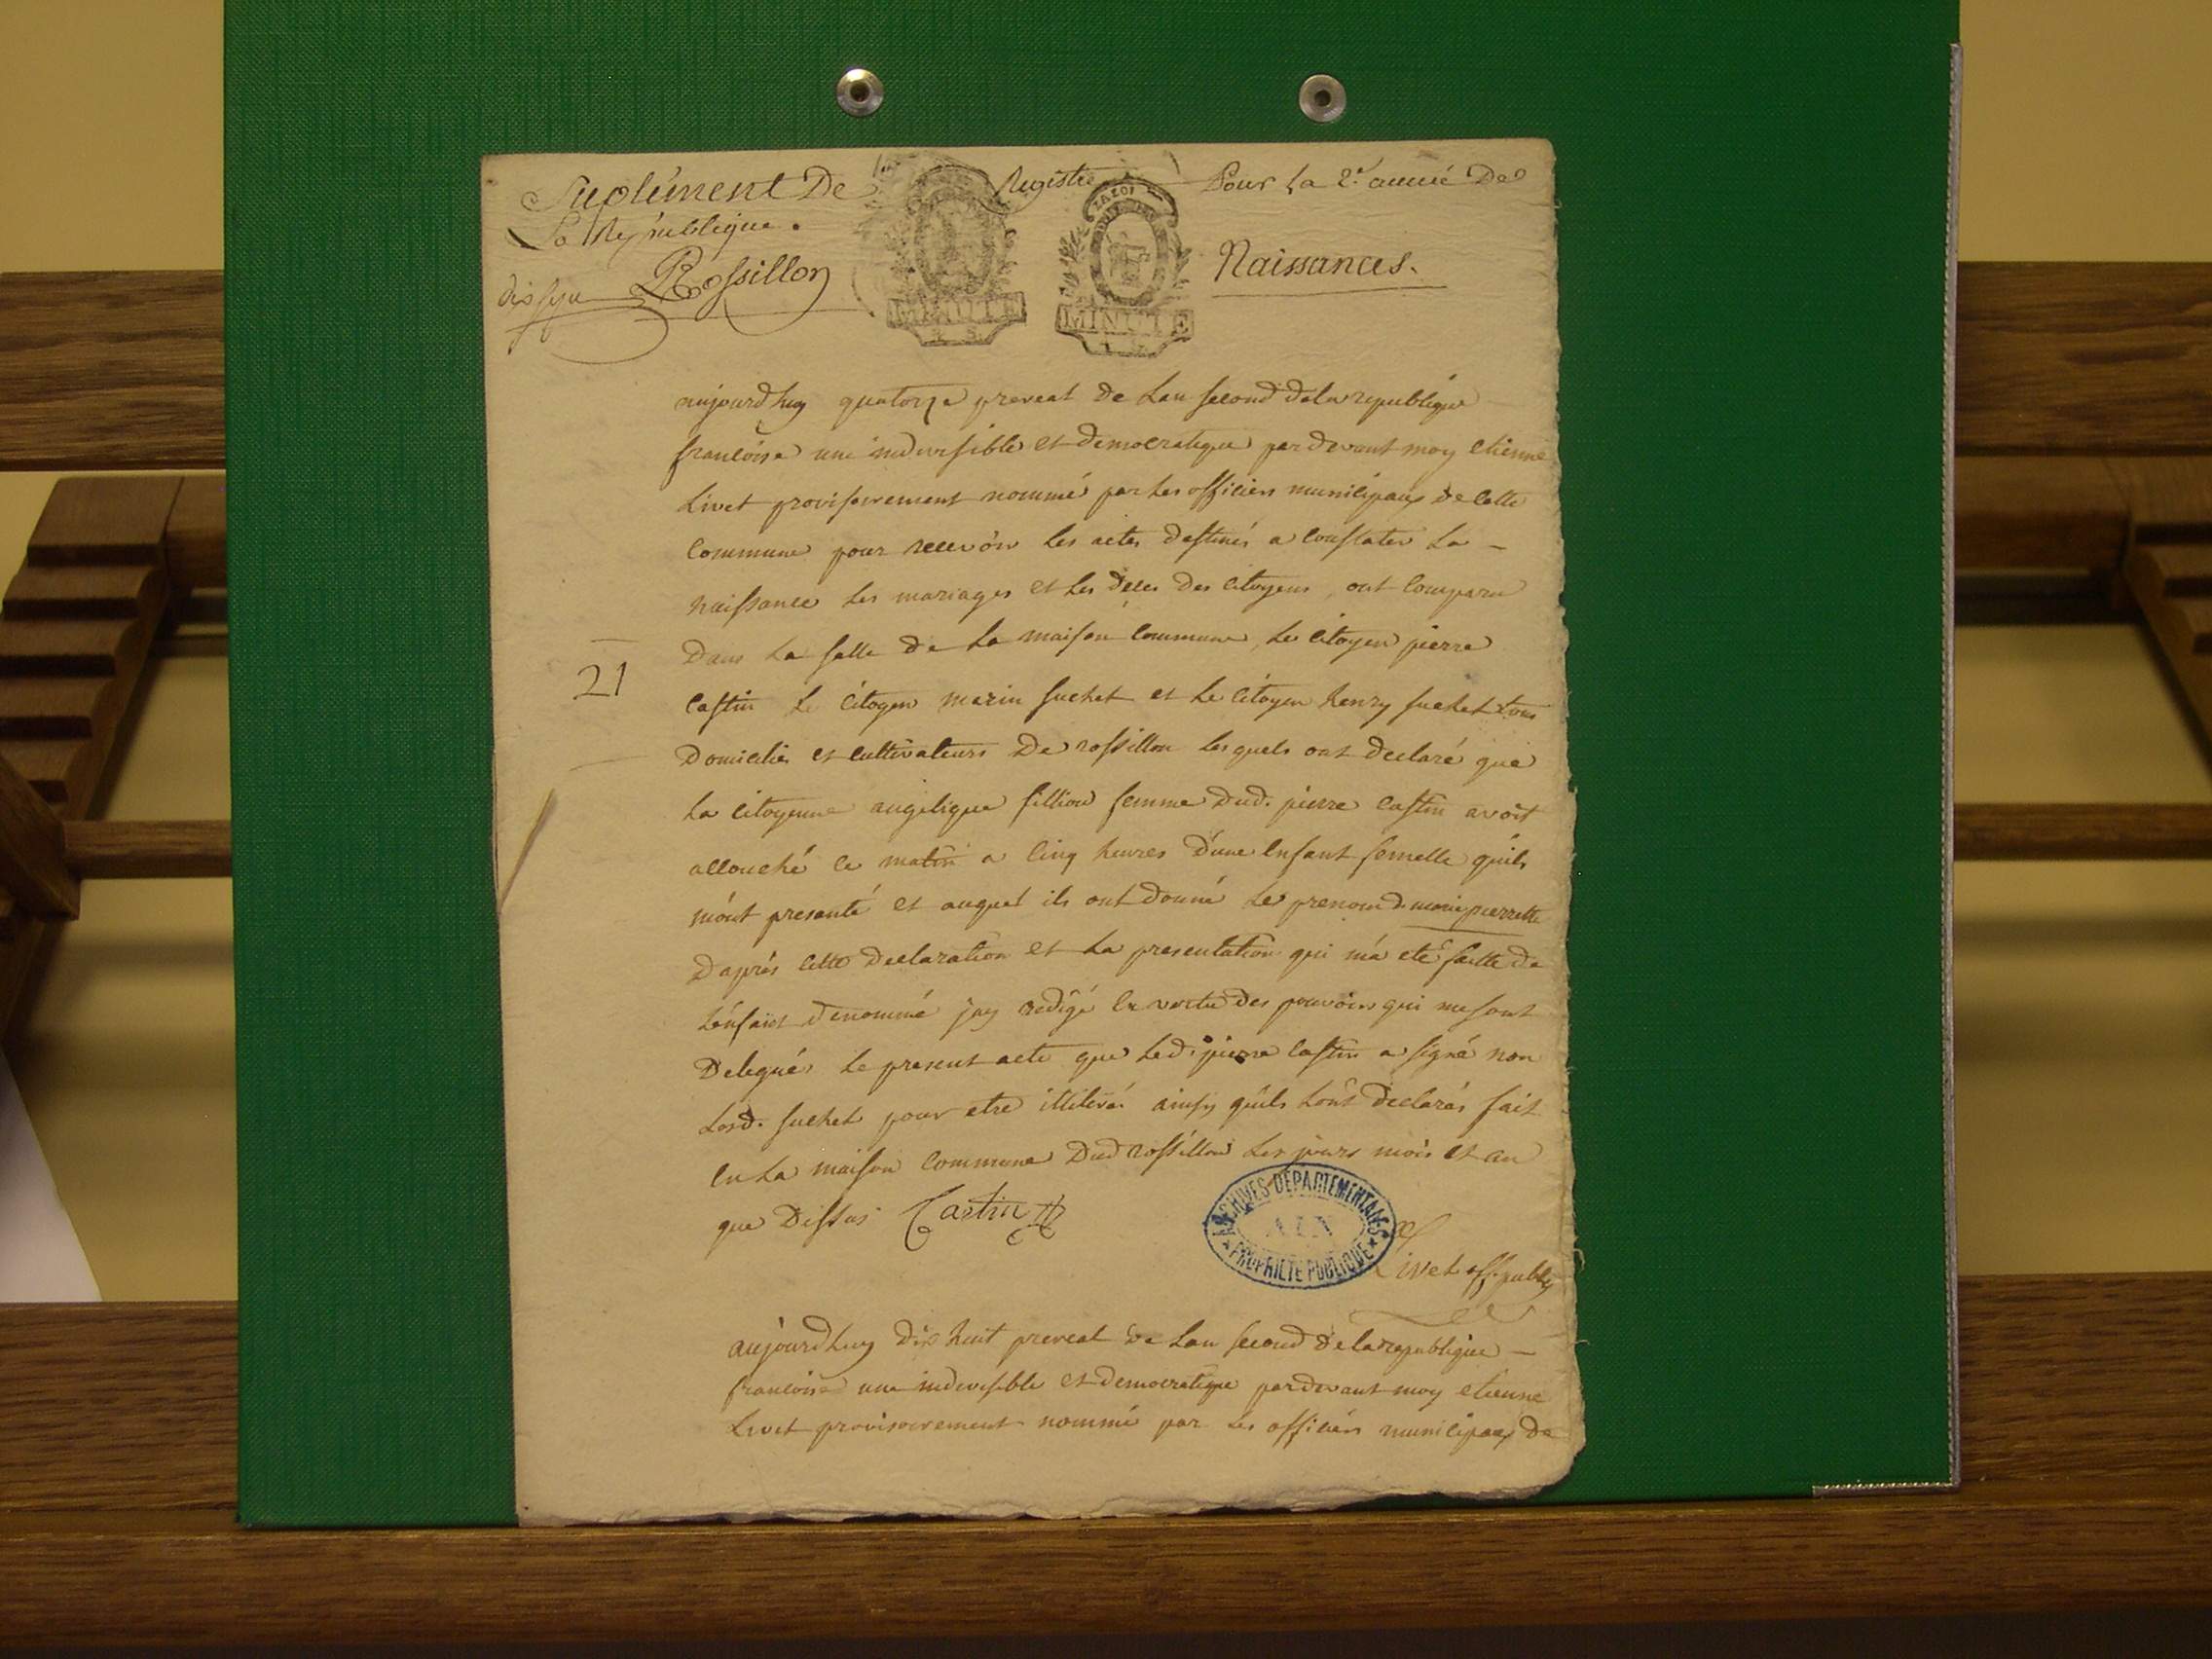 Suplément De Registre Pour la 2.e année De
La République.
Rossillon
Naissances.
LA LOI
MINUTE
MINUTE
aujourdhuy quatorze prereal de Lan second de la republique
francoise une indivisible et democratique par devant moy etienne
Livet provisoirement nommé par les officiers municipaux de cette
commune pour recevoir les actes destinés a constater la
naissance les mariages et les deces des citoyens, ont comparu
Dans la salle de la maison commune, le citoyen pierre
21
castin le citoyen marin suchet et le citoyen henry suchet tous
Domiciliés et cultivateurs De rossillon lesquels ont declaré que
la citoyenne angelique fillion femme dud. pierre castin avoit
accouché ce matin a cinq heures d'une enfant femelle quils
m'ont presenté et auquel ils ont donné le prenom de marie pierrette
D'aprés cette declaration et la presentation qui m'a eté faitte de
L'enfant denommé jay redigé en vertu des pouvoirs qui me sont
Delegués le present acte que led. pierre castin a signé non
Lesd. suchet pour etre illiteré ainsy quils l'ont declarés fait
en la maison commune dud rossillon les jours mois et an
que Dessus Castin
ARCHIVES DÉPARTEMENTALES
AIN
PROPRIÉTÉ PUBLIQUE
Livet off. public
aujourdhuy dix huit prereal de lan second de la republique
francoise une indivisible et democratique par devant moy etienne
Livet provisoirement nommé par les officiers municipaux de